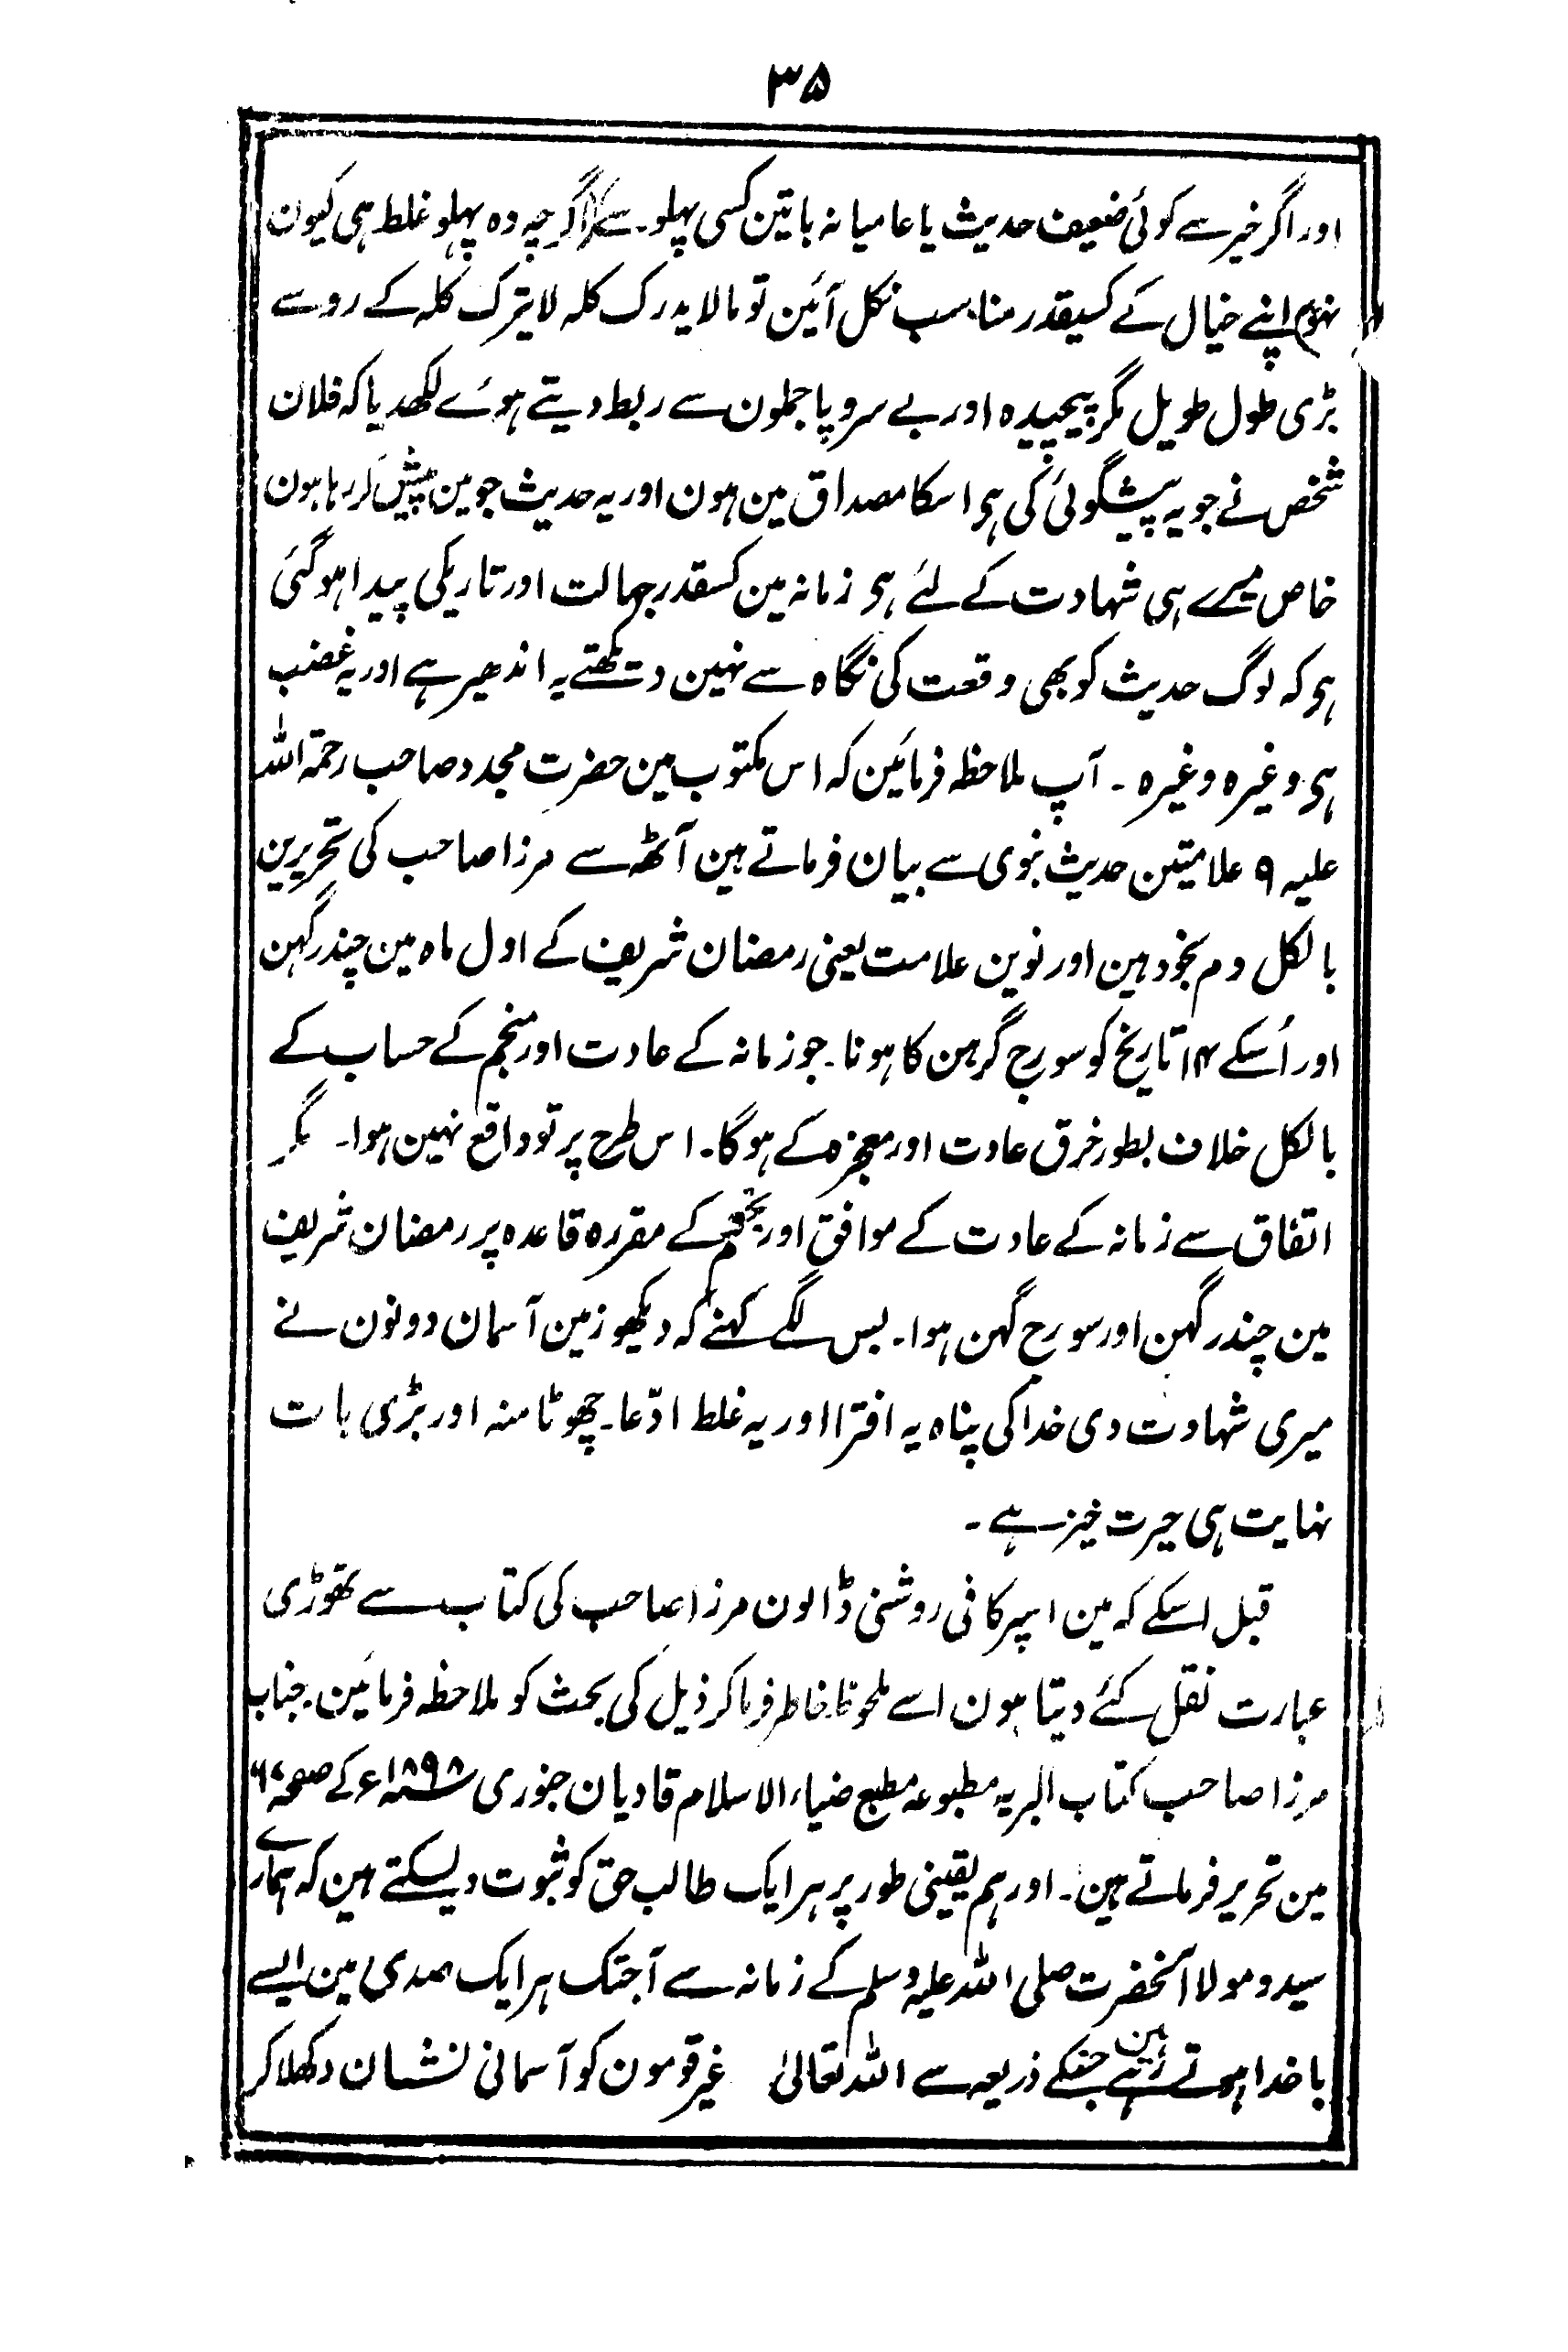 ۳۵
اور اگر خیر سے کوئی ضعیف حدیث یا عامیانہ باتین کسی پہلو۔ سے (اگرچہ وہ پہلو غلط ہی کیون
نہو) اپنے خیال کے کسیقدر مناسب نکل آئین تو مالا یدرک کلہ لا یترک کلہ کے رو سے
بڑی طول طویل مگر پیچیدہ اور بے سروپا جملون سے ربط دیتے ہوئے لکھدیا کہ فلان
شخص نے جو یہ پیشگوئی کی ہی اسکا مصداق مین ہون اور یہ حدیث جو مین پیش کر رہا ہون
خاص میرے ہی شہادت کے لئے ہی زمانہ مین کسقدر جہالت اور تاریکی پیدا ہوگئی
ہی کہ لوگ حدیث کو بھی وقعت کی نگاہ سے نہین دیکھتے یہ اندھیر ہے اور یہ غضب
ہی وغیرہ وغیرہ ۔ آپ ملاحظہ فرمائین کہ اس مکتوب مین حضرت مجدد صاحب رحمۃ اللہ
علیہ ۹ علامتین حدیث نبوی سے بیان فرماتے ہین آٹھ سے مرزا صاحب کی تحریرین
بالکل دم بخود ہین اور نوین علامت یعنی رمضان شریف کے اول ماہ مین چندر گہن
اور اُسکے ۱۴ تاریخ کو سورج گرہن کا ہونا۔ جو زمانہ کے عادت اور منجم کے حساب کے
بالکل خلاف بطور خرق عادت اور معجزہ کے ہوگا۔ اس طرح پر تو واقع نہین ہوا۔ مگر
اتفاق سے زمانہ کے عادت کے موافق اور کے مقررہ قاعدہ پر رمضان شریف
مین چندر گہن اور سورج گہن ہوا۔ بس لگے کہنے کہ دیکھو زمین آسمان دونون نے
میری شہادت دی خدا کی پناہ یہ افترا اور یہ غلط ادّعا۔ چھوٹا منہ اور بڑی بات
نہایت ہی حیرت خیز ہے ۔
قبل اسکے کہ مین اسپر کافی روشنی ڈالون مرزا صاحب کی کتاب سے تھوڑی
عبارت نقل کئے دیتا ہون اسے ملحوظ خاطر فرما کر ذیل کی بحث کو ملاحظہ فرمائین۔ جناب
مرزا صاحب کتاب البریہ مطبوعہ مطبع ضیاء الاسلام قادیان جنوری ۱۸۹۸ء کے صفحہ
مین تحریر فرماتے ہین۔ اور ہم یقینی طور پر ہر ایک طالب حق کو ثبوت دیسکتے ہین کہ ہمارے
سید و مولا آنحضرت صلی اللہ علیہ وسلم کے زمانہ سے آجتک ہر ایک صدی مین ایسے
باخدا ہوتے رہے ہین جنکے ذریعہ سے اللہ تعالیٰ غیر قومون کو آسمانی نشان دکھلا کر